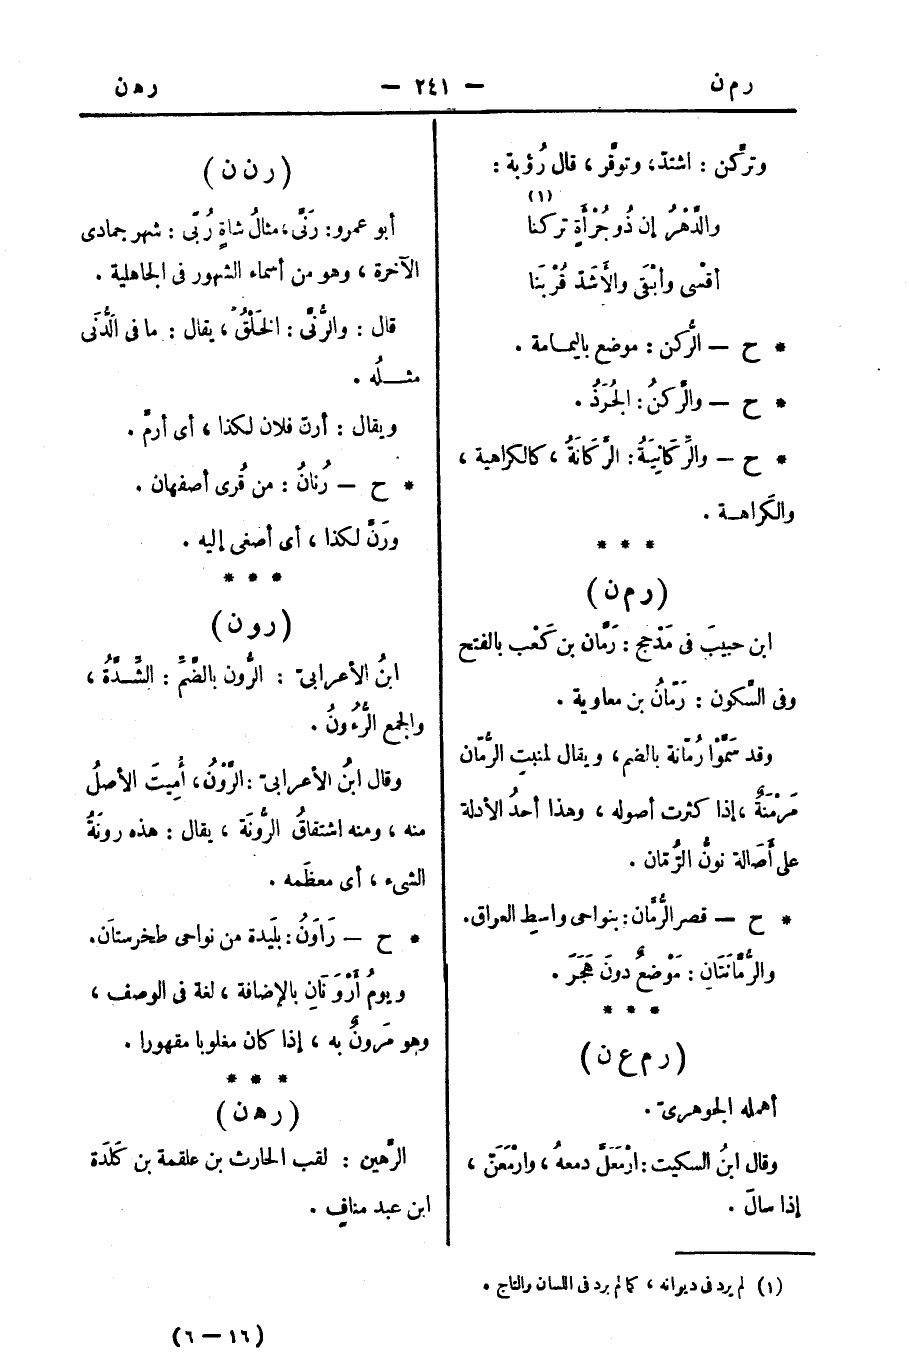 رم ن — ٢٤١ — رهن
وتركَّن : اشتدّ، وتوقَّر ، قال رُؤبة :
والدَّهْرُ إن ذُو جُرْأَةٍ تركنا (١)
أقْسى وأبْقَى والأَشَدّ قُرْبَنا
* ح — الرُّكن : موضع باليمامة .
* ح — والرَّكنُ : الجُرَذُ .
* ح — والرِّكَانِيَةُ : الرَّكَانَةُ ، كالكراهية ،
والكَراهة .
* * *
(رم ن)
ابن حبيبَ فى مَذْحِج : رَمَّان بن كَعْب بالفتح
وفى السَّكون : رَمّانُ بن معاوية .
وقد سَمَّوْا رُمّانة بالضم ، ويقال لمنبتِ الرمّان
مَرْمَنَةٌ ، إذا كثرت أصوله ، وهذا أحدُ الأدلة
على أَصَالة نونُ الرُّمان .
* ح — قصر الرُّمَّان : بنواحى واسطِ العراق.
والرُّمَّانَتَانِ : مَوْضعٌ دونَ هَجَرَ .
* * *
(رم ع ن)
أهمله الجوهرىّ .
وقال ابنُ السكيت : ارْمَعَلَّ دمعهُ ، وارْمَعَنّ ،
إذا سالَ .
(رن ن)
أبو عمرو : رَنَّى ، مثالُ شاةٍ رُبَّى : شهر جمادى
الآخرة ، وهو من أسماء الشهور فى الجاهلية .
قال : والرُّنَّى : الخَلْقُ ، يقال : ما فى الرُّنَّى
مثلُه .
ويقال : أرنّ فلان لكذا ، أى أرمَّ .
* ح — رُنانُ : من قُرى أصفهان .
ورَنَّ لكذا ، أى أصغى إليه .
* * *
(رون)
ابنُ الأعرابىّ : الرُّون بالضَّمِّ : الشِّدَّةُ ،
والجمع الرُّءُونُ .
وقال ابنُ الأعرابىّ : الرَّوْنُ ، أُمِيتَ الأصلُ
منه ، ومنه اشتقاقُ الرُّونَة ، يقال : هذه رونَةُ
الشىء ، أى معظَمه .
* ح — رَاوَنُ : بلَيدة من نواحى طخرستان.
ويومُ أَرْوَنَانِ بالإضافة ، لغة فى الوصف ،
وهو مَرونٌ به ، إذا كان مغلوبا مقهورا .
* * *
(رهن)
الرَّهين : لقب الحارث بن علقمة بن كَلَدَة
ابن عبد منافٍ .
(١) لم يرد فى ديوانه ، كما لم يرد فى اللسان والتاج .
(١٦ — ٦)